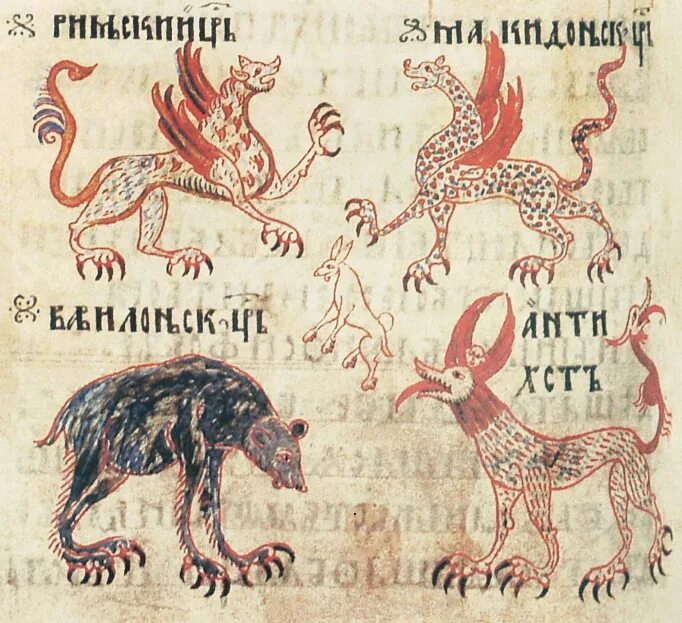 РИМЬСКИИ Ц҃РЬ
МАКИДОНЬСК· Ц҃РЬ
ВАВИЛОНЬСК· Ц҃РЬ
АНТИ
ХСТЪ